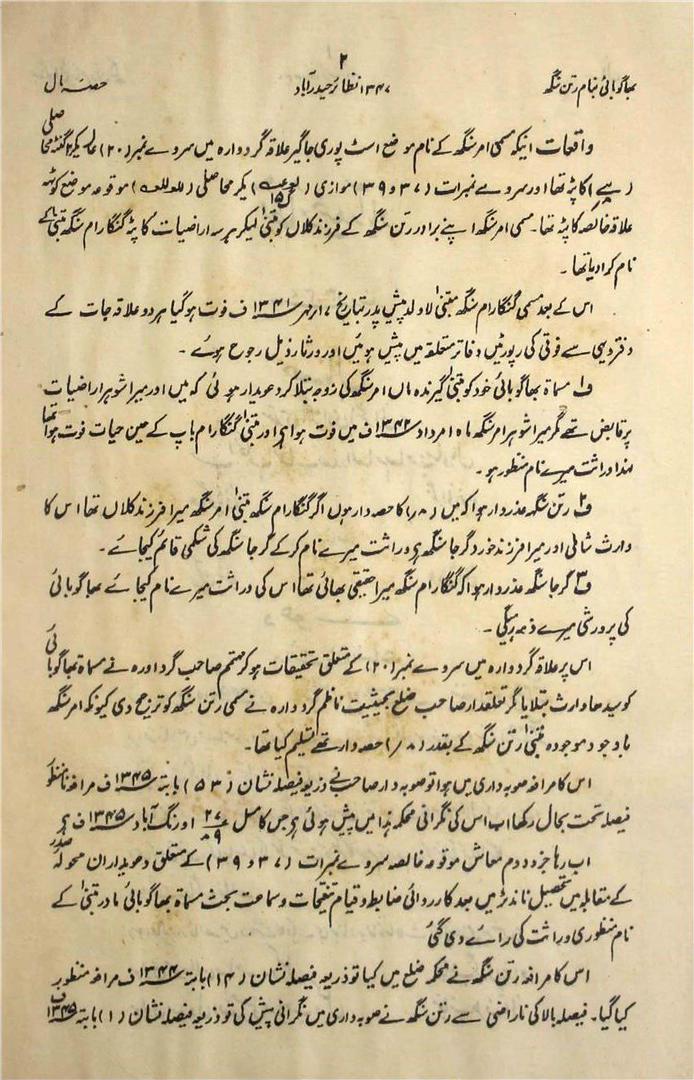 ۲
بھاگو بائی بنام رتن سنگھ ۱۳۴۷ نظائر حیدرآباد حصہ مال
واقعات اینکہ مسمی امر سنگھ کے نام موضع است پوری جاگیر علاقہ گردوارہ میں سروے نمبر (۲۰)
کا پٹہ تھا اور سروے نمبرات (۳۷ و ۳۹) موازی یکر محاصلی موقوعہ موضع کوٹہ
علاقہ خالصہ کا پٹہ تھا۔ مسمی امر سنگھ اپنے برادر رتن سنگھ کے فرزند کلاں کو متبنیٰ لیکر ہر سہ اراضیات کا پٹہ گنگارام سنگھ متبنیٰ کے
نام کرا دیا تھا۔
اس کے بعد مسمی گنگا رام سنگھ متبنیٰ لا ولد پیش پدر بتاریخ ۱۷ مہر ۱۳۴۱ ف فوت ہوگیا ہر دو علاقہ جات کے
دفتر دیہی سے فوتی کی رپورٹیں دفاتر متعلقہ میں پیش ہوئیں اور ورثاء ذیل رجوع ہوئے۔
ف۱ مسماۃ بھاگو بائی خود کو متبنیٰ گیرندہ ماں امر سنگھ کی زوجہ بتلا کر دعویدار ہوئی کہ میں اور میرا شوہر اراضیات
پر قابض تھے مگر میرا شوہر امر سنگھ ماہ امرداد ۱۳۴۲ ف میں فوت ہوا ہے اور متبنیٰ گنگا رام باپ کے عین حیات فوت ہوا تھا
لہذا وراثت میرے نام منظور ہو۔
ف۲ رتن سنگھ عذردار ہوا کہ میں (۸؍) کا حصہ دار ہوں اگر گنگا رام سنگھ متبنیٰ امر سنگھ میرا فرزند کلاں تھا اس کا
وارث شانی اور میرا فرزند خورد گرجا سنگھ ہے وراثت میرے نام کر کے گرجا سنگھ کی شکمی قائم کیجائے۔
ف۳ گرجا سنگھ عذردار ہوا کہ گنگا رام سنگھ میرا حقیقی بھائی تھا اس کی وراثت میرے نام کیجائے بھاگو بائی
کی پرورش میرے ذمہ رہیگی۔
اس پر علاقہ گردوارہ میں سروے نمبر (۲۰) کے متعلق تحقیقات ہو کر مہتمم صاحب گردوارہ نے مسماۃ بھاگو بائی
کو سیدھا وارث بتلایا مگر تعلقدار صاحب ضلع بحیثیت ناظم گردوارہ نے مسمی رتن سنگھ کو ترجیح دی کیونکہ امر سنگھ
باوجود موجودہ متبنیٰ رتن سنگھ کے بقدر (۸؍) حصہ دار تھے تسلیم کیا تھا۔
اس کا مرافعہ صوبہ داری میں ہوا تو صوبہ دار صاحب نے ذریعہ فیصلہ نشان (۵۳) بابتہ ۱۳۴۵ ف مرافعہ نامنظور
فیصلہ تحت بحال رکھا اب اس کی نگرانی محکمہ ہذا میں پیش ہوئی ہے جس کا مسل اورنگ آباد ۱۳۴۵ ف ہے
اب رہا جزو دوم معاش موقوعہ خالصہ سروے نمبرات (۳۷ و ۳۹) کے متعلق دعویداران محولہ صدر
کے مقابلہ میں تحصیل ناندیڑ میں بعد کارروائی ضابطہ و قیام تنقیحات و سماعت بحث مسماۃ بھاگو بائی مادر متبنیٰ کے
نام منظوری وراثت کی رائے دی گئی
اس کا مرافعہ رتن سنگھ نے محکمہ ضلع میں کیا تو ذریعہ فیصلہ نشان (۱۴) بابتہ ۱۳۴۴ ف مرافعہ منظور
کیا گیا۔ فیصلہ بالا کی ناراضی سے رتن سنگھ نے صوبہ داری میں نگرانی پیش کی تو ذریعہ فیصلہ نشان (۱) بابتہ ۱۳۴۵ ف